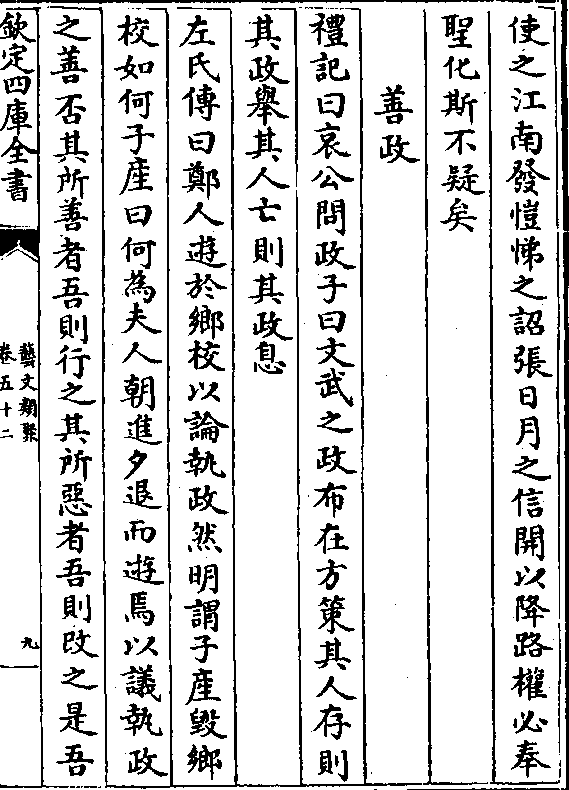 使之江南發愷悌之詔張日月之信開以降路權必奉
聖化斯不疑矣
善政
禮記曰哀公問政子曰文武之政布在方策其人存則
其政舉其人亡則其政息
左氏傳曰鄭人遊於鄉校以論執政然明謂子產毀鄉
校如何子產曰何為夫人朝進夕退而遊焉以議執政
之善否其所善者吾則行之其所惡者吾則改之是吾
欽定四庫全書
藝文類聚
卷五十二
九